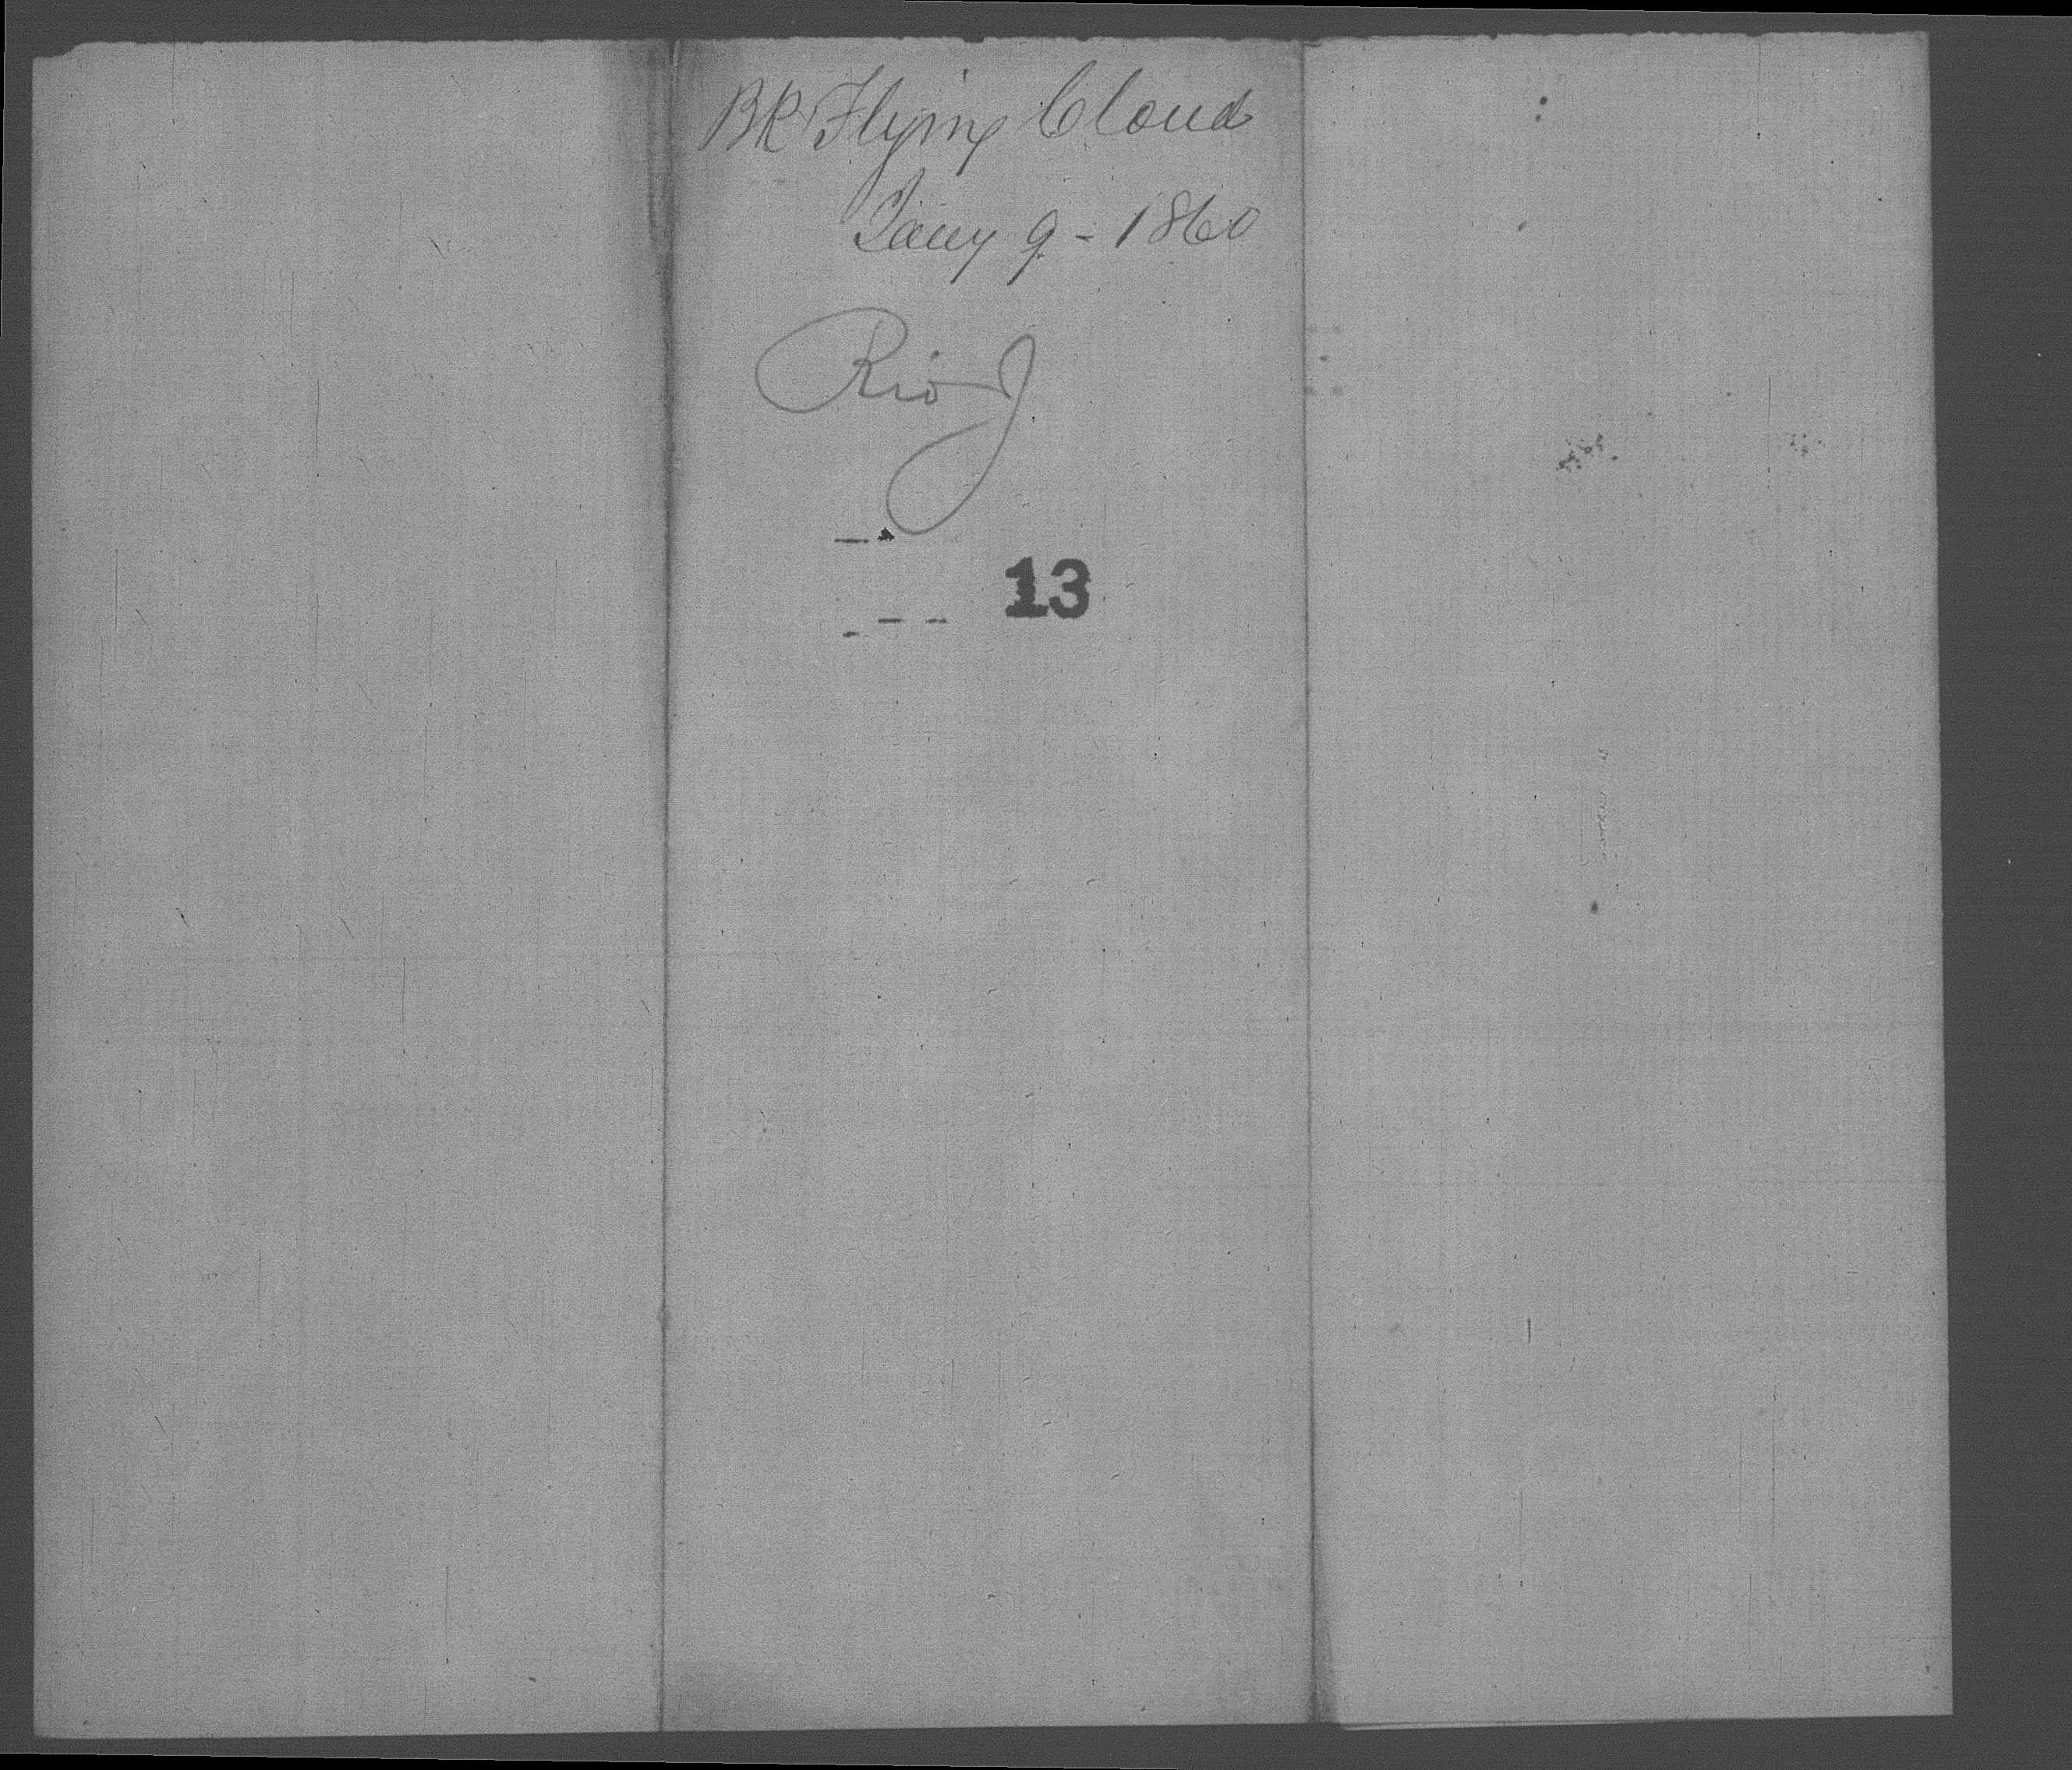 BK Flying Cloud
Jany 9 - 1860
Rio J
13